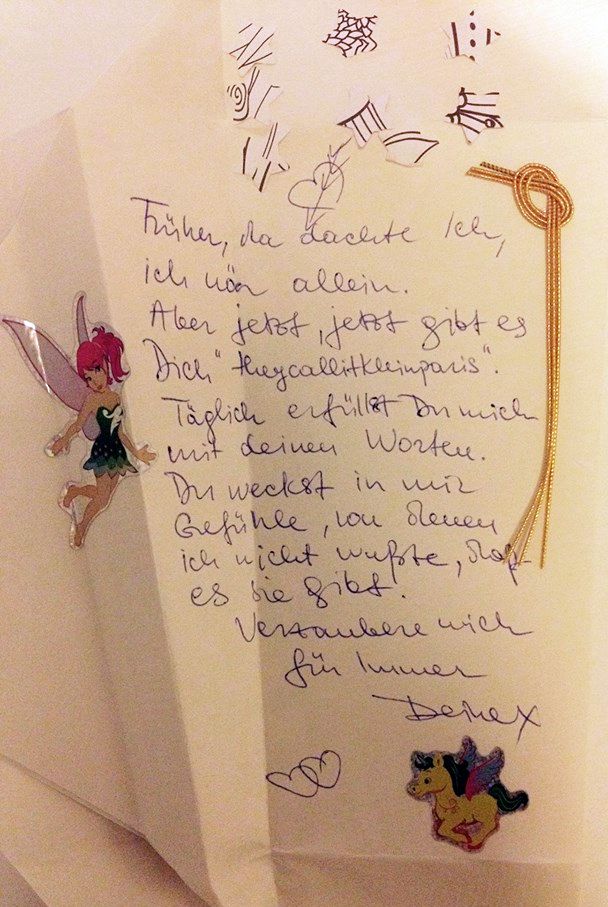 Früher, da dachte Ich,
ich wär allein.
Aber jetzt, jetzt gibt es
Dich "theycallitkleinparis".
Täglich erfüllst Du mich
mit deinen Worten.
Du weckst in mir
Gefühle, von denen
ich nicht wußte, daß
es sie gibt.
Verzaubere mich
für Immer
Deine X